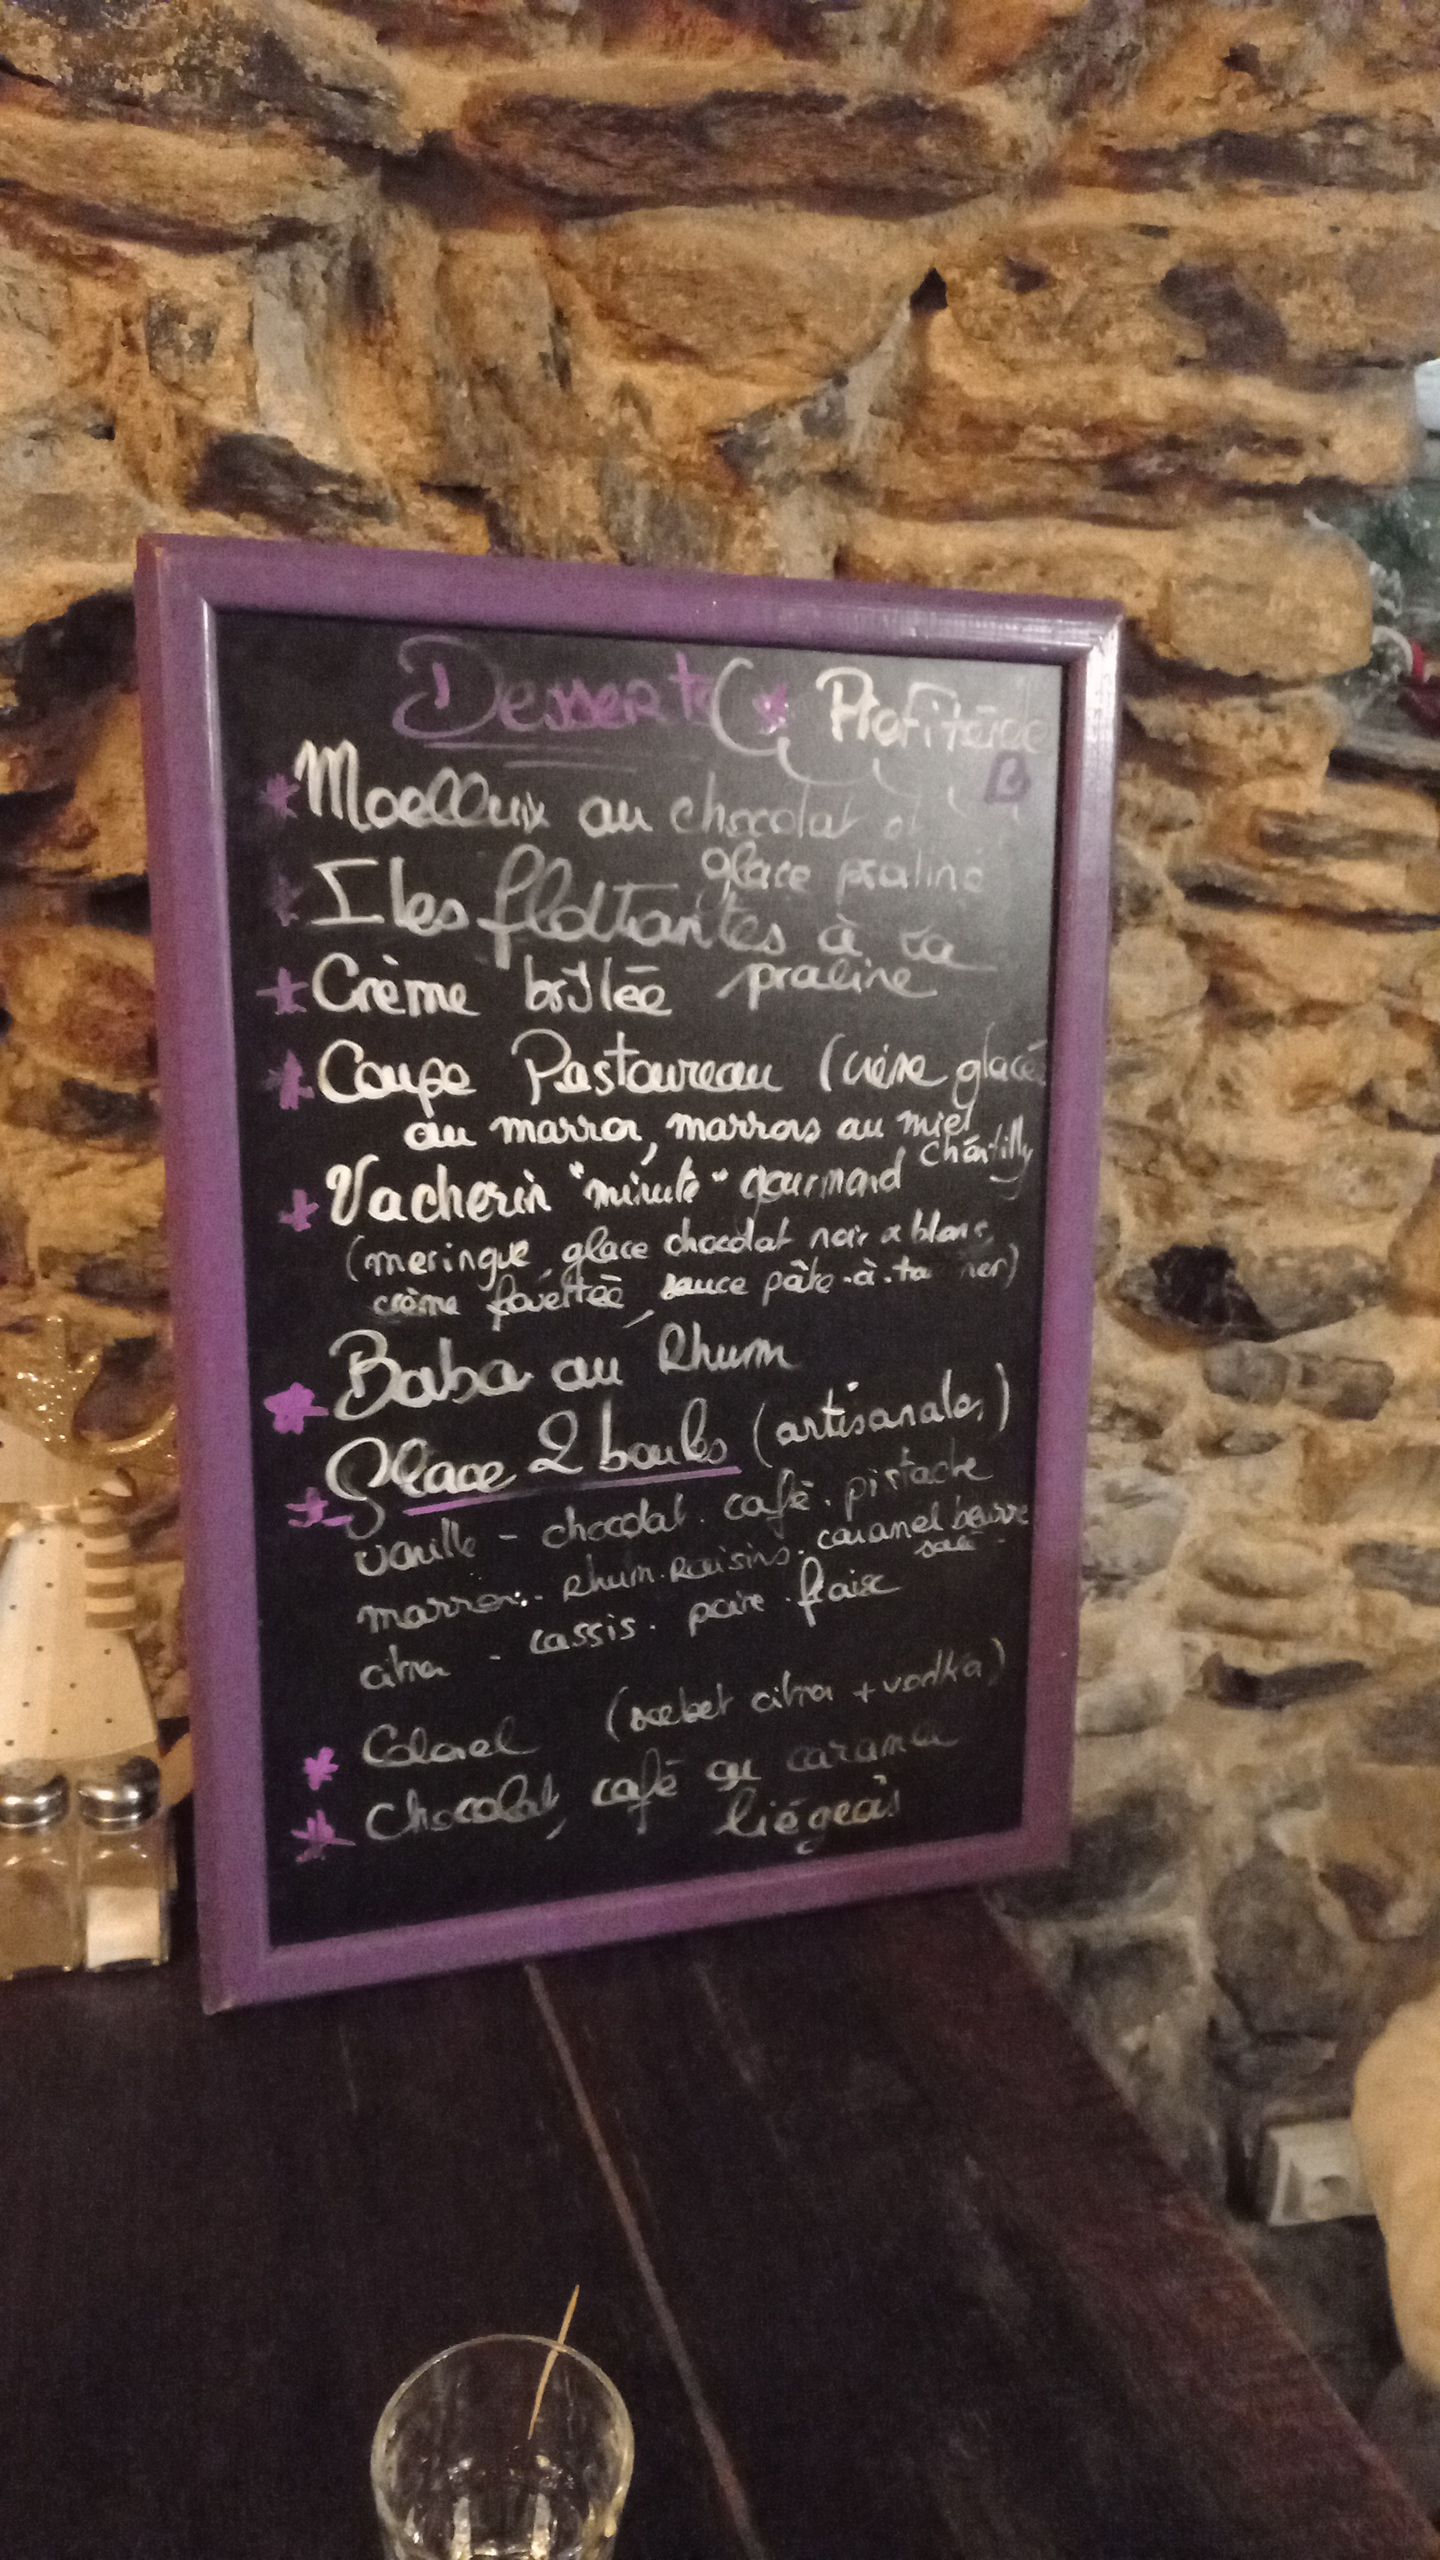 Desserts * Profiterole
* Moelleux au chocolat et
glace praliné
* Iles flottantes à la
praline
* Crème brûlée
* Coupe Pastoureau (crème glacée
au marron, marrons au miel
Chantilly
* Vacherin "minute" gourmand
(meringue, glace chocolat noir & blanc,
crème fouettée, sauce pâte-à-ta ner)
* Baba au Rhum
* Glace 2 boules (artisanales)
vanille - chocolat. café. pistache
marron.. Rhum.Raisins. caramel beurre
salé -
citron - cassis. poire. fraise
* Colonel (sorbet citron + vodka)
* Chocolat, café ou caramel
liégeois